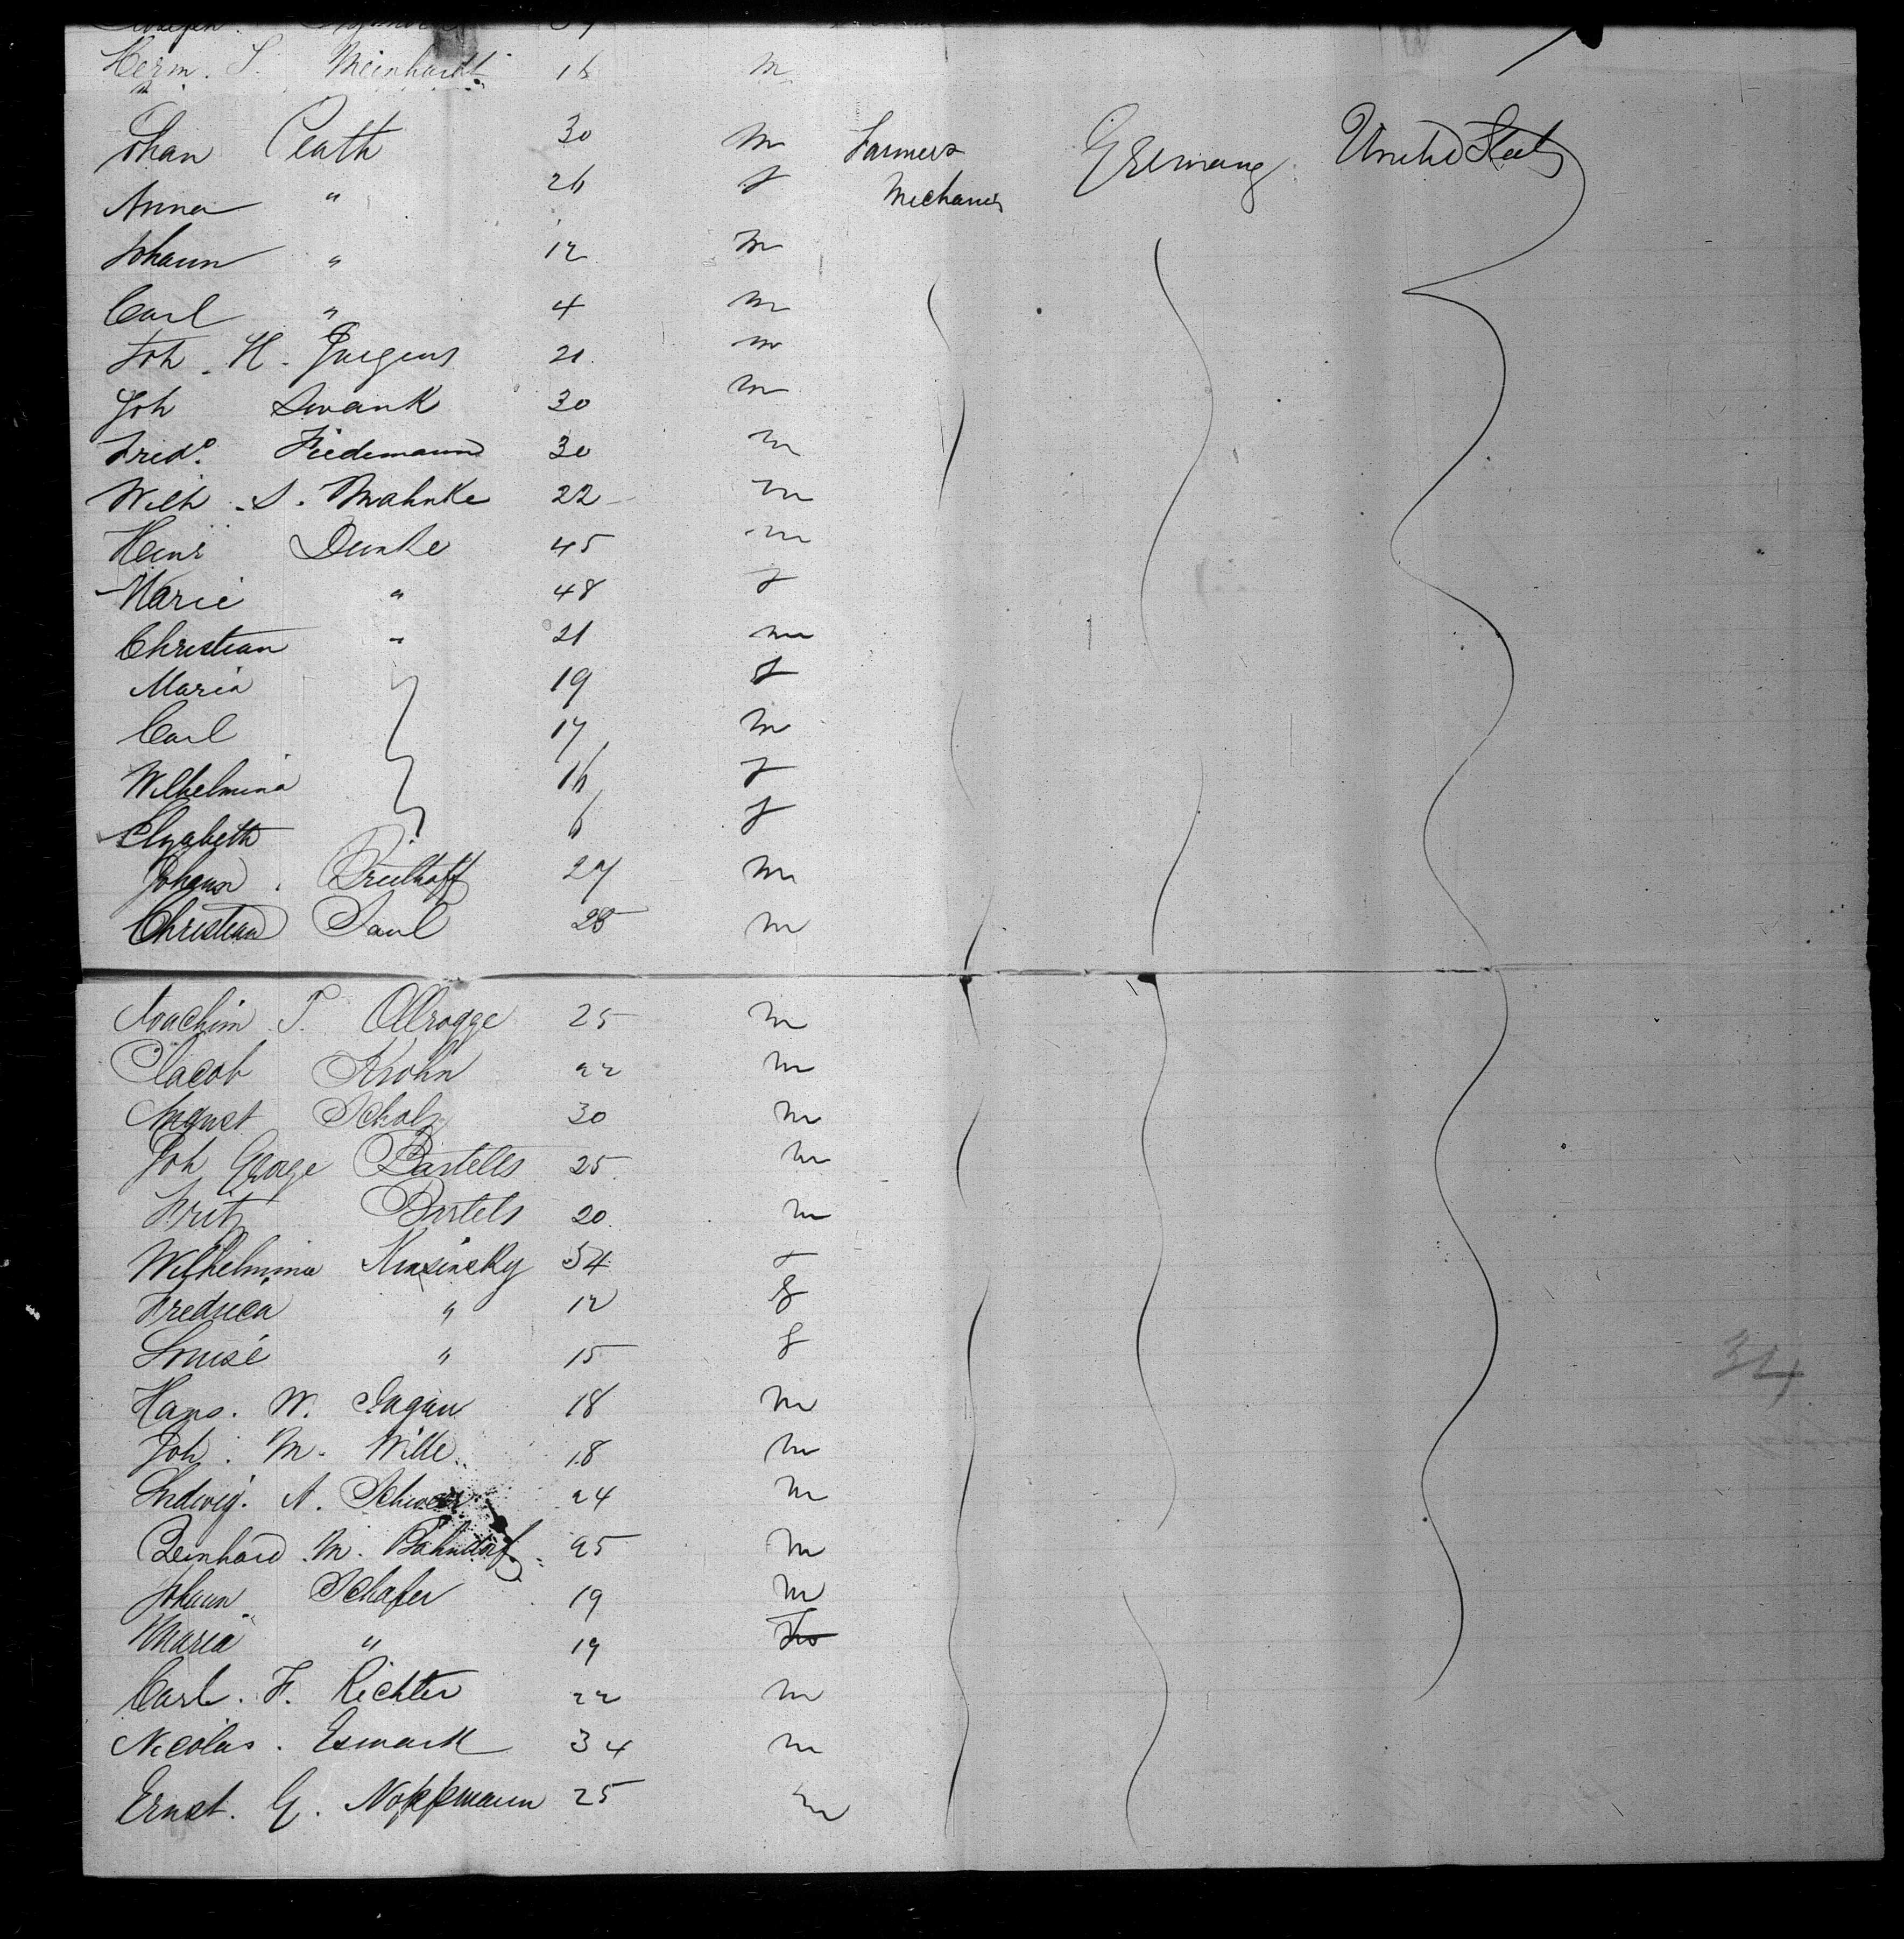 Herm. S. Meinhardt 16 m
Johan Peath 30 m Farmers Germany United States
Anna " 26 f Mechanics
Johann " 12 m
Carl " 4 m
Joh. H. Jurgens 21 m
Joh Swank 30 m
Fredo. Tiedemann 30 m
Wilh. S. Mahnke 22 m
Heinr Dunke 45 m
Marie " 48 f
Christian " 21 m
Maria 19 f
Carl 17 m
Wilhelmina 16 f
Elyabeth 6 f
Johann 27 m
Christian Paul 28 m
Joachim T. Ollrogge 25 m
Jacob Krohn 22 m
August Scholz 30 m
Joh George Bartells 25 m
Fritz Bartels 20 m
Wilhelmina Kinsinsky 54 f
Fredrica " 12 f
Louise " 15 f
Hans. W. 18 m
Joh. M. Wille 18 m
34
Ludwig. A. 24 m
Bernhard M. Bahndorf 25 m
Johann Schafer 19 m
Maria " 19
Carl. F. Richter 22 m
Nicolas. Esmark 34 m
Ernst. G. Noppmann 25 m